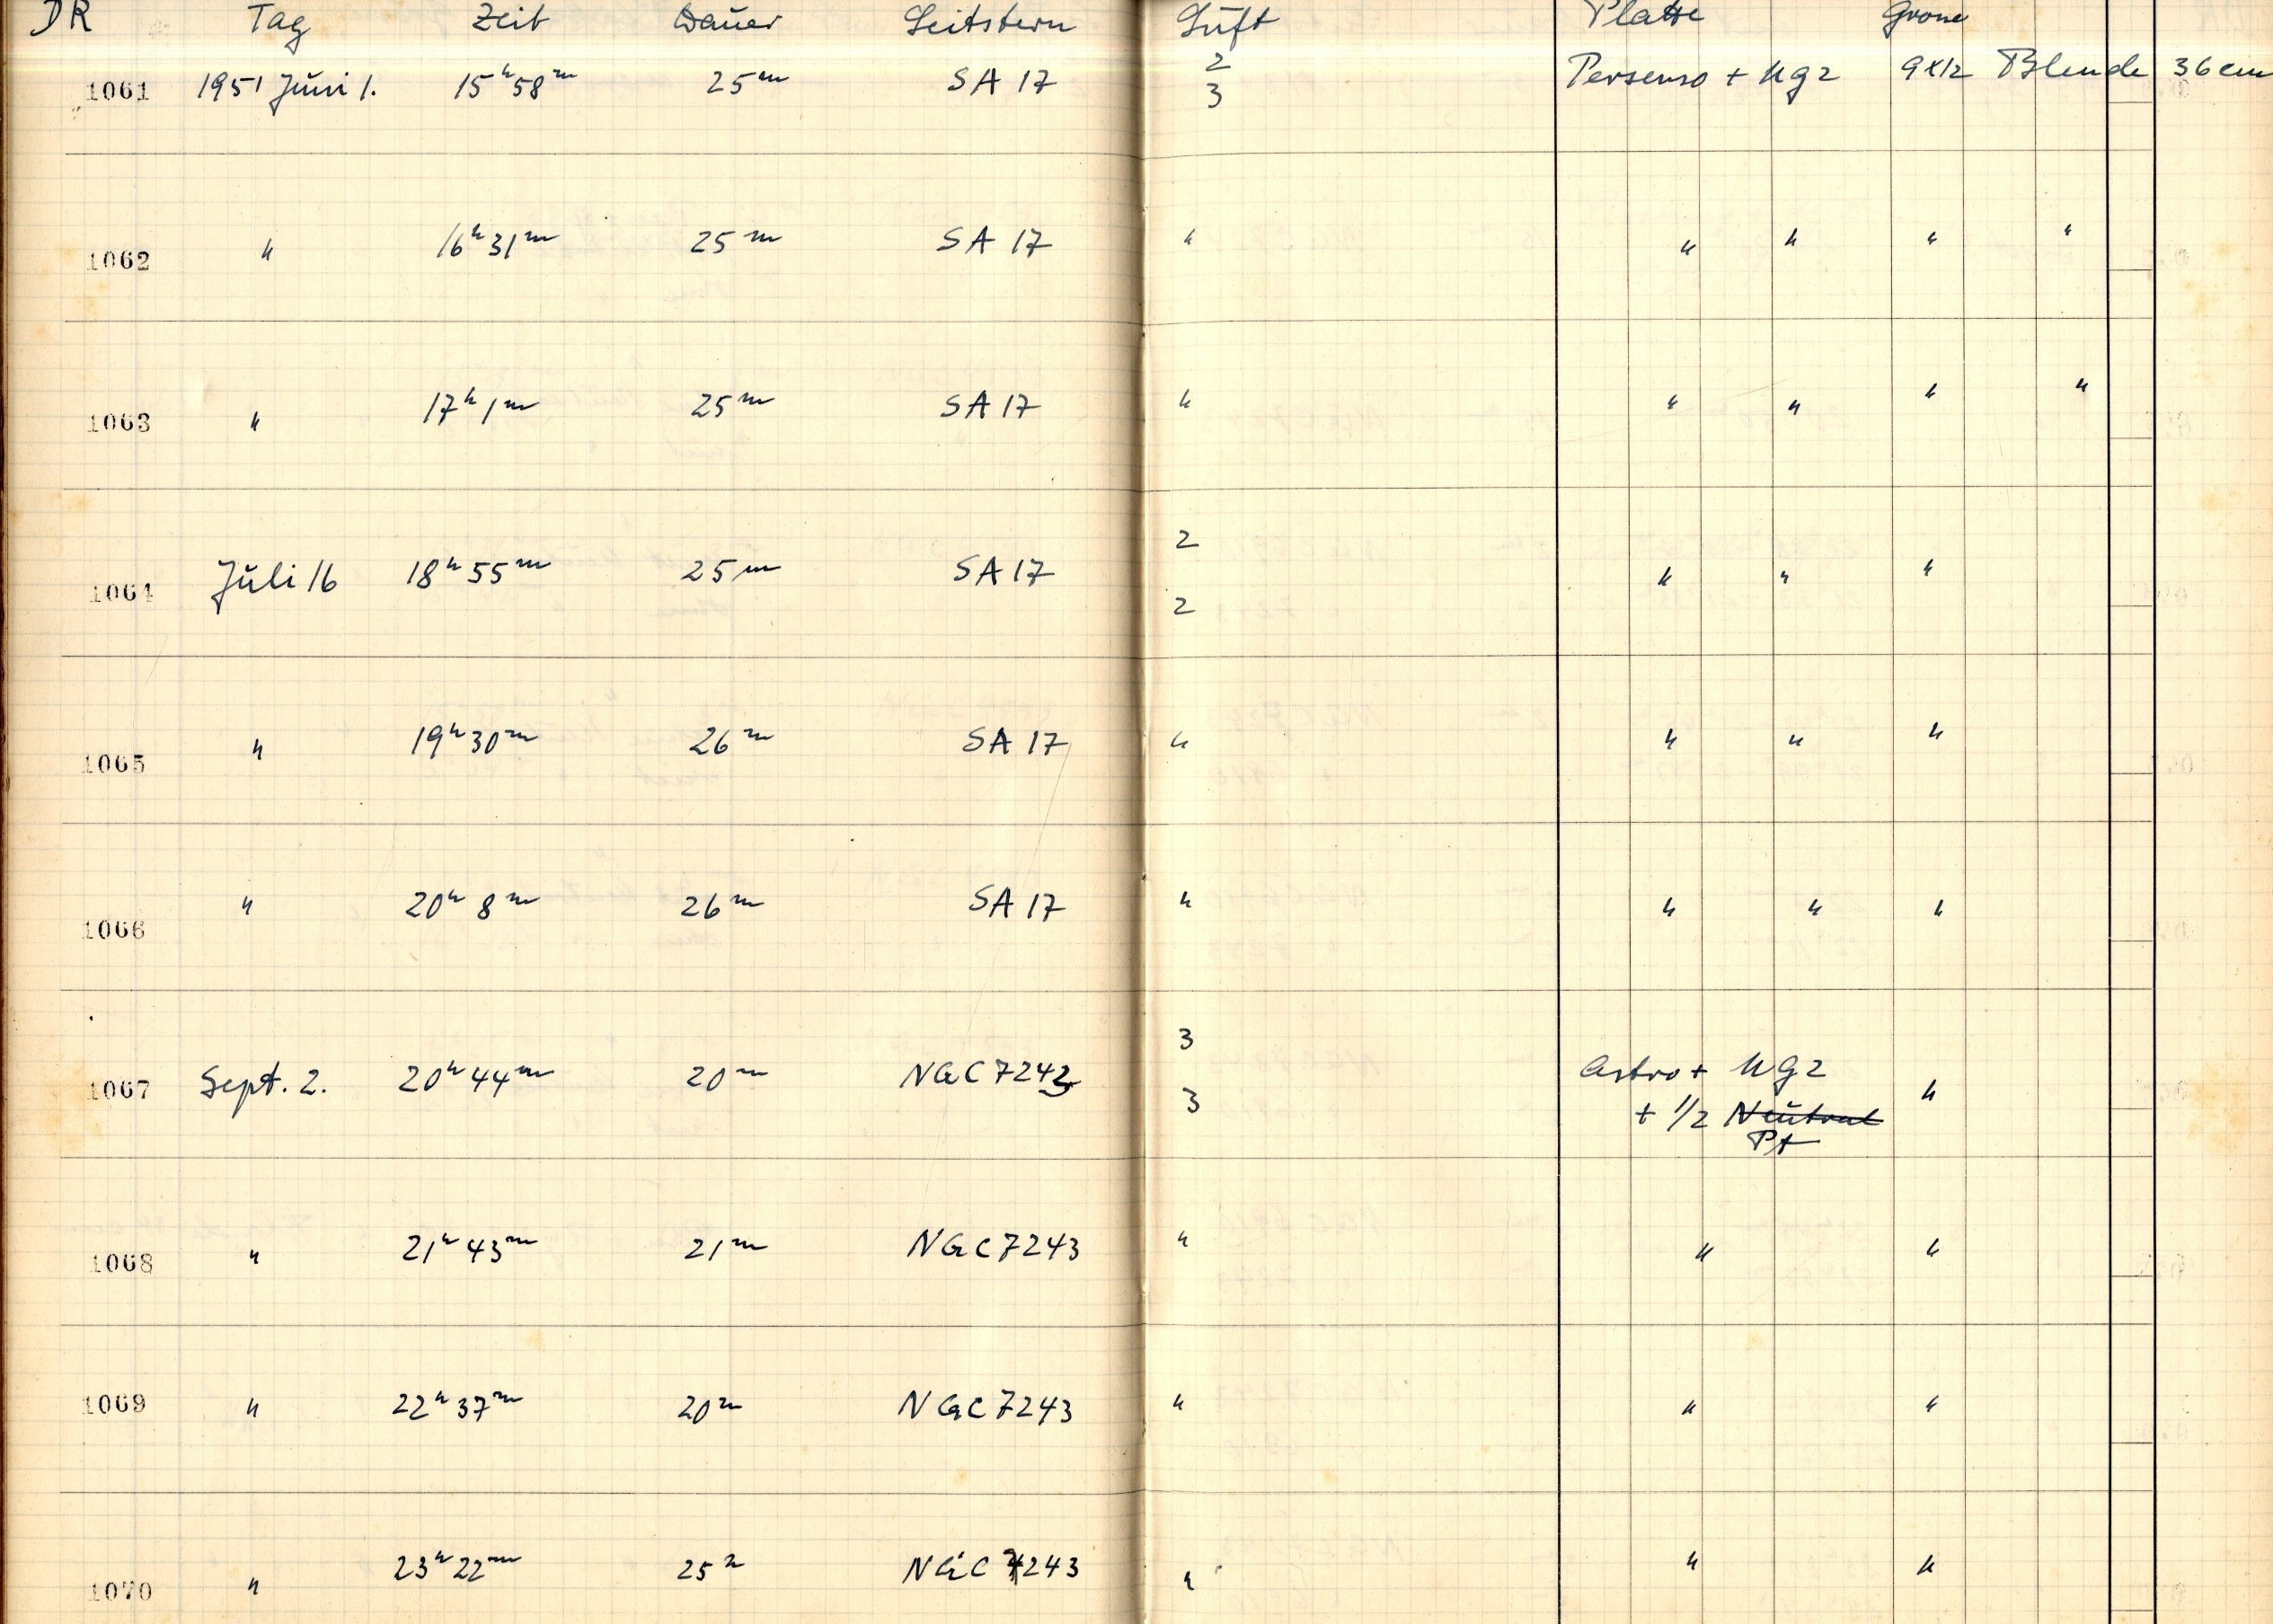 DR Tag Zeit Dauer Leitstern Luft Platte Grösse
1061 1951 Juni 1. 15h58m 25m SA 17 2 3 Persenso + UG2 9x12 Blende 36cm
1062 " 16h31m 25m SA 17 " " " " "
1063 " 17h1m 25m SA 17 " " " " "
1064 Juli 16 18h55m 25m SA 17 2 2 " " "
1065 " 19h30m 26m SA 17 " " " "
1066 " 20h 8m 26m SA 17 " " " "
1067 Sept. 2. 20h44m 20m NGC 7243 3 3 Astro + UG2 "
+ 1/2 Neutral
Pt
1068 " 21h43m 21m NGC 7243 " " "
1069 " 22h37m 20m NGC 7243 " " "
1070 " 23h22m 25m NGC 7243 " " "